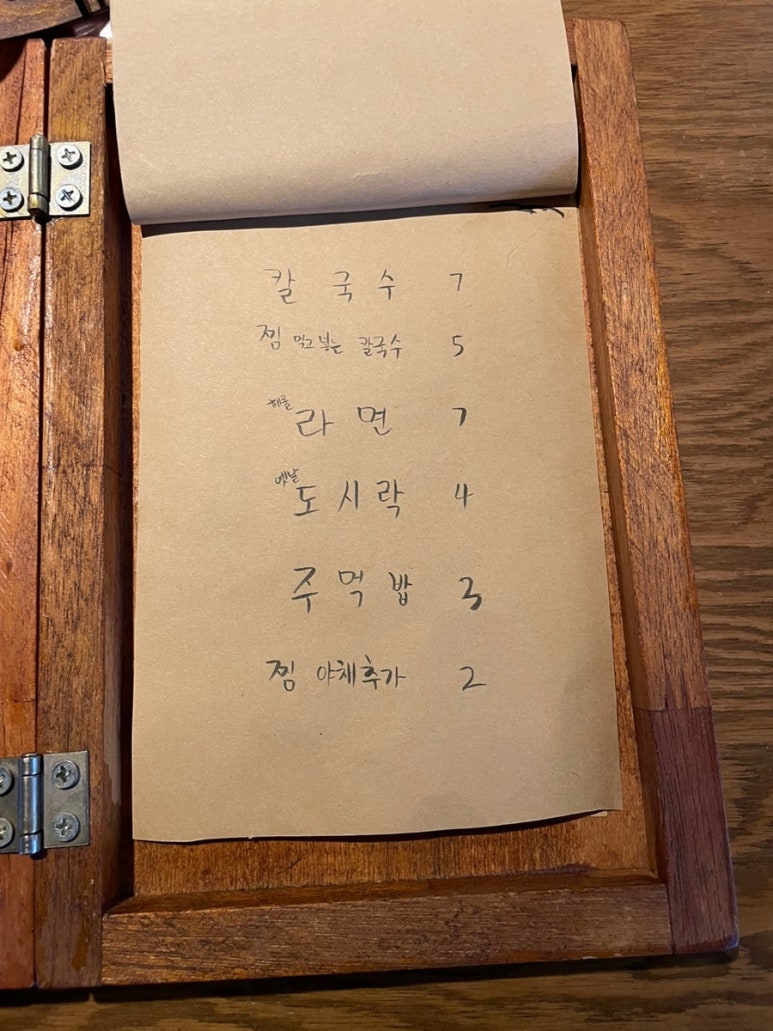 칼국수 7
찜 먹고 넣는 칼국수 5
해물 라면 7
옛날 도시락 4
주먹밥 3
찜 야채추가 2